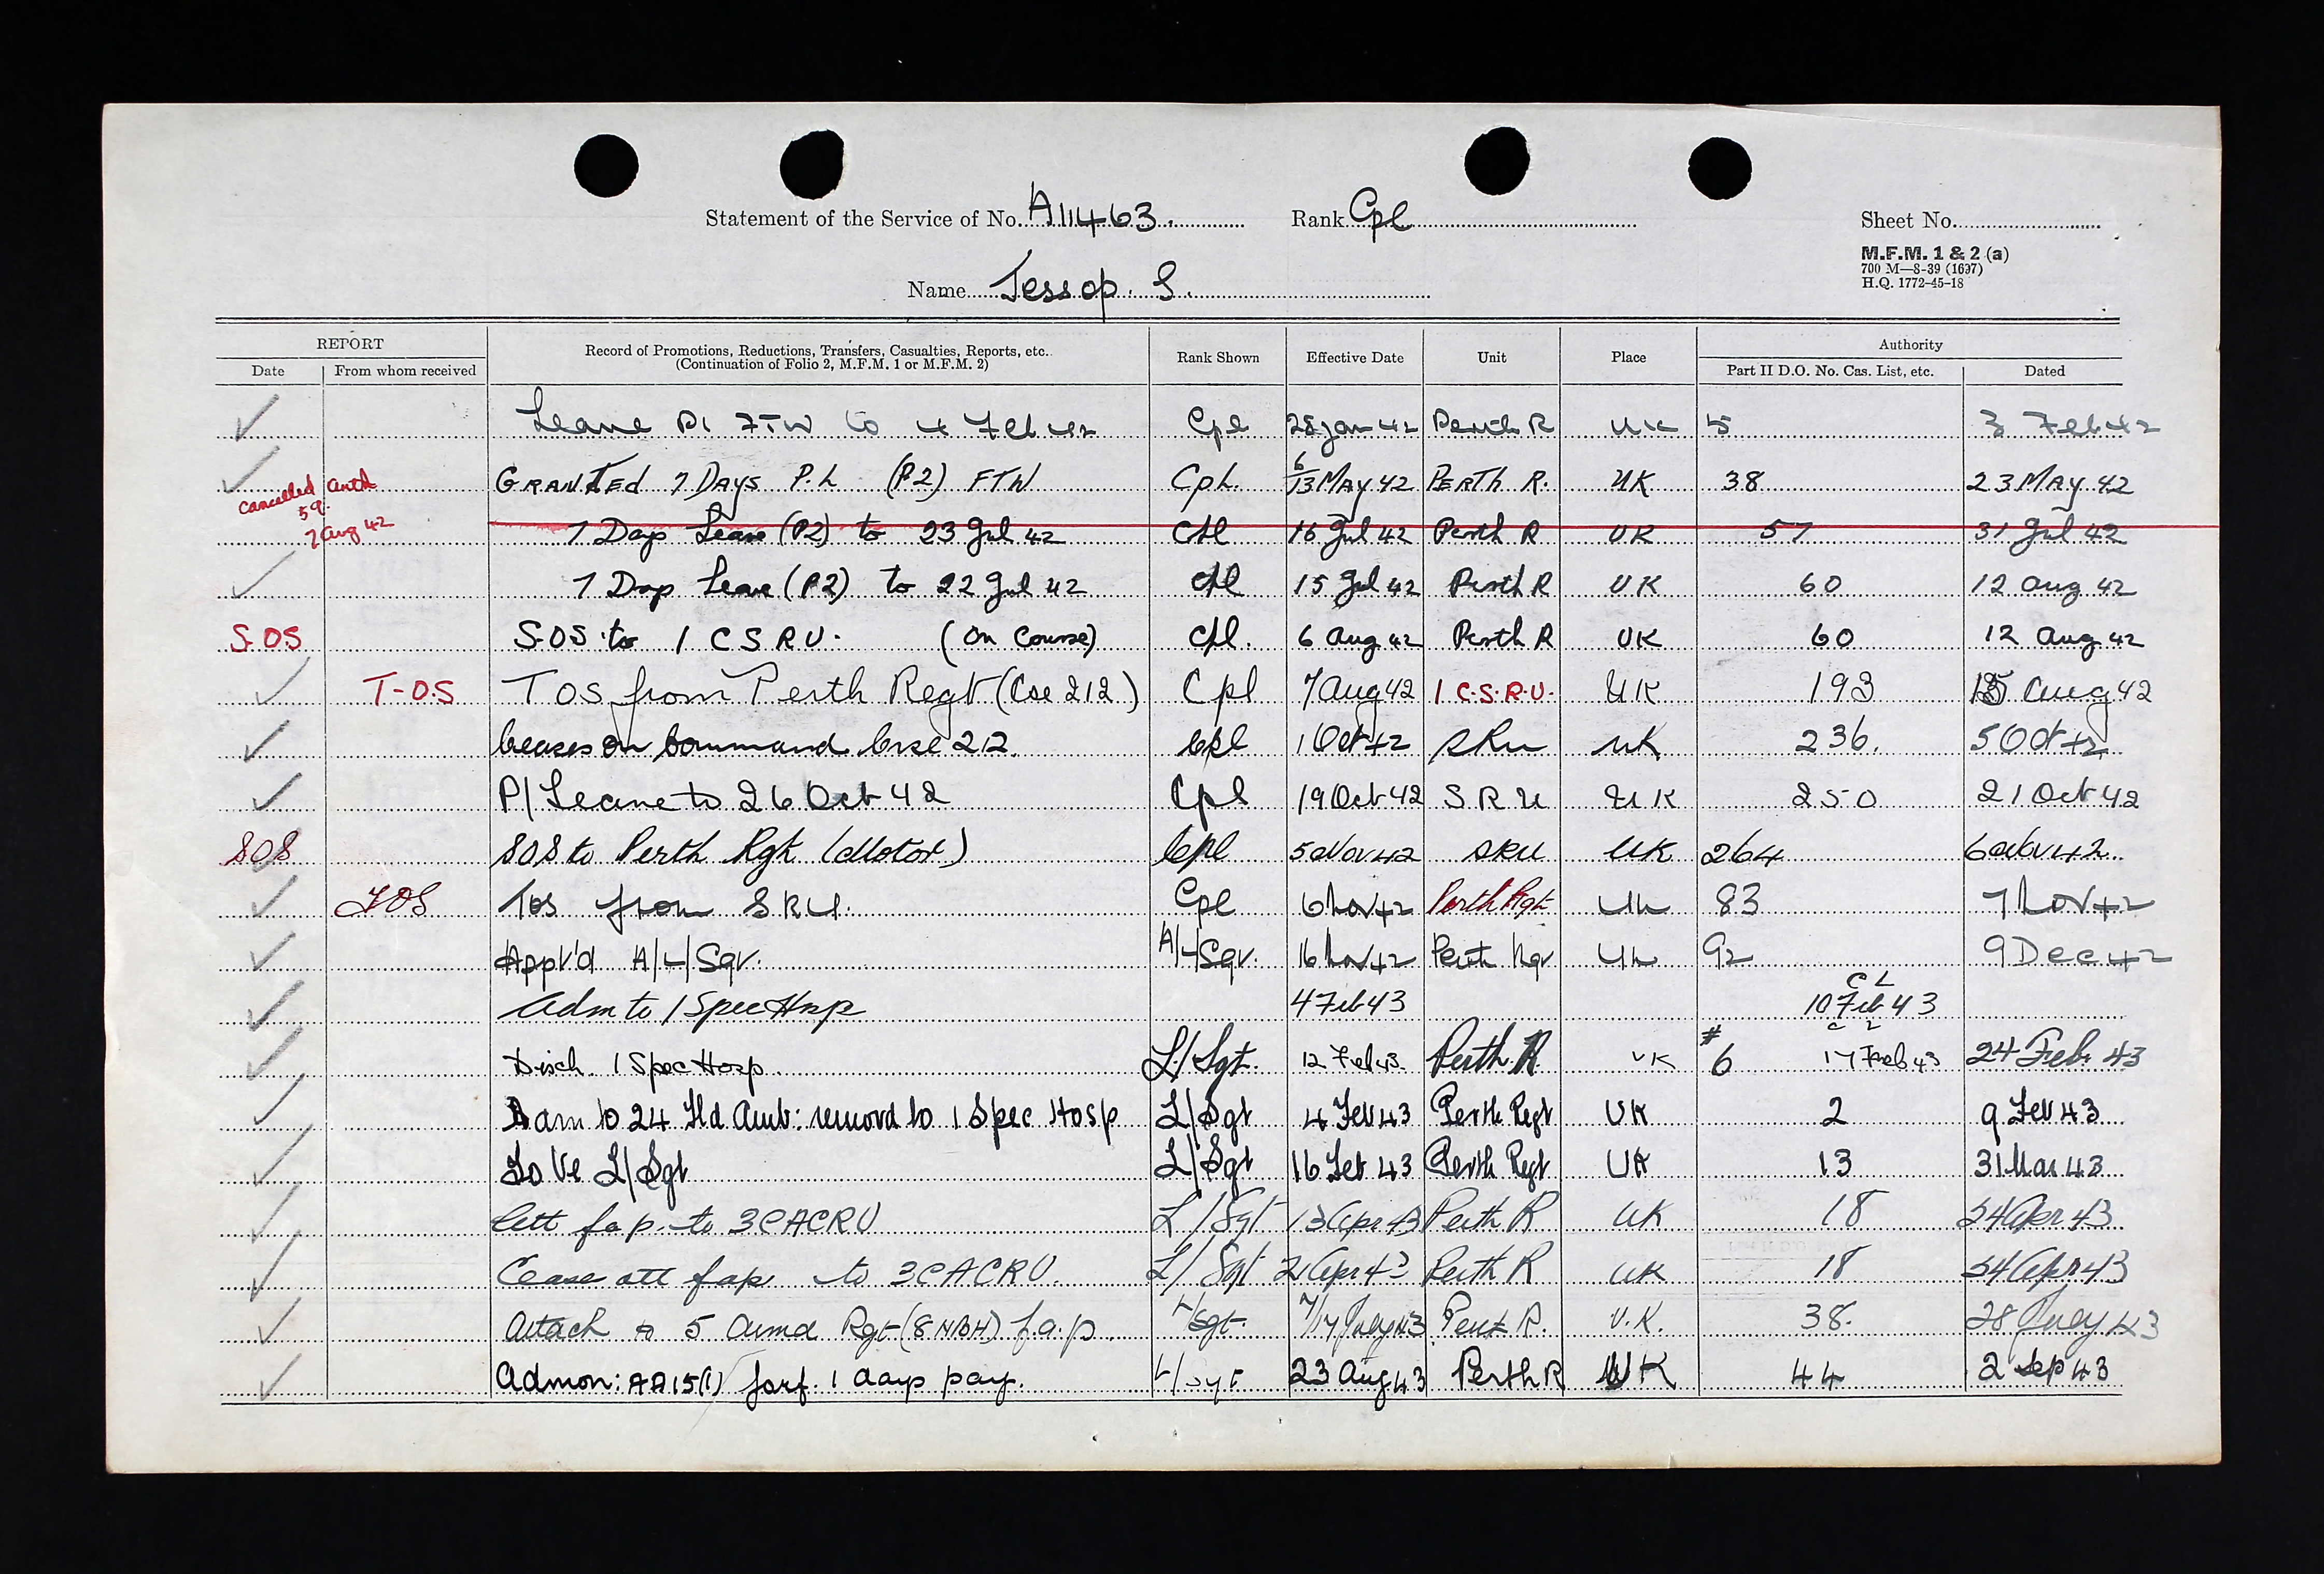 Statement of the Service of No. A11463. Rank Cpl Sheet No.
M.F.M. 1 & 2 (a)
700 M—8-39 (1697)
H.Q. 1772-45-18
Name Jessop. S.
REPORT Record of Promotions, Reductions, Transfers, Casualties, Reports, etc. Rank Shown Effective Date Unit Place Authority
(Continuation of Folio 2, M.F.M. 1 or M.F.M. 2)
Date From whom received Part II D.O. No. Cas. List, etc. Dated
Leave P1 FTW to 4 Feb 42 Cpl 28 Jan 42 Perth R UK 5 3 Feb 42
GRANTEd 7 DAys P.L (P.2) FTW CpL. 6/13 MAy 42 PERTh R. UK 38 23 MAy 42
Cancelled auth
59
7 Aug 42
7 Days Leave (P2) to 23 Jul 42 Cpl 16 Jul 42 Perth R UK 57 31 Jul 42
7 Days Leave (P2) to 22 Jul 42 Cpl 15 Jul 42 Perth R UK 60 12 Aug 42
S-OS SOS to 1 C S R U. (On Course) Cpl. 6 Aug 42 Perth R UK 60 12 Aug 42
T-O.S TOS from Perth Regt (Cse 212) Cpl 7 Aug 42 1 C.S.R.U. UK 193 Aug 42
Ceases on Command Crse 212. Cpl 1 Oct 42 SRU UK 236. 5 Oct 42
P/Leave to 26 Oct 42 Cpl 19 Oct 42 S R U UK 250 21 Oct 42
SOS SOS to Perth Rgt (Motor) Cpl 5 Nov 42 SRU UK 264 6 Nov 42
TOS Tos from S.R.U. Cpl 6 Nov 42 Perth Rgt UK 83 7 Nov 42
Appt'd A/L/Sgt. A/L/Sgt. 16 Nov 42 Perth Rgt UK 92 9 Dec 42
Adm to 1 Spec Hosp 4 Feb 43 C L 10 Feb 43
Disch. 1 Spec Hosp. L/Sgt. 12 Feb 43 Perth. R UK # 6 C L 17 Feb 43 24 Feb 43
Adm to 24 Fld Amb: removd to 1 Spec Hosp L/Sgt 4 Feb 43 Perth Regt UK 2 9 Feb 43
To be L/Sgt L/Sgt 16 Feb 43 Perth Regt UK 13 31 Mar 43
Att f a p. to 3CACRU L/Sgt 13 Apr 43 Perth R UK 18 24 Apr 43
Cease att f a p to 3CACRU. L/Sgt 21 Apr 43 Perth R UK 18 24 Apr 43
Attach to 5 Armd Rgt (8 NBH) f.a.p. L/Sgt. 7/17 July 43 Perth R. U.K. 38. 28 July 43
Admon: AA15(1) forf. 1 days pay. L/Sgt 23 Aug 43 Perth R UK 44 2 Sep 43